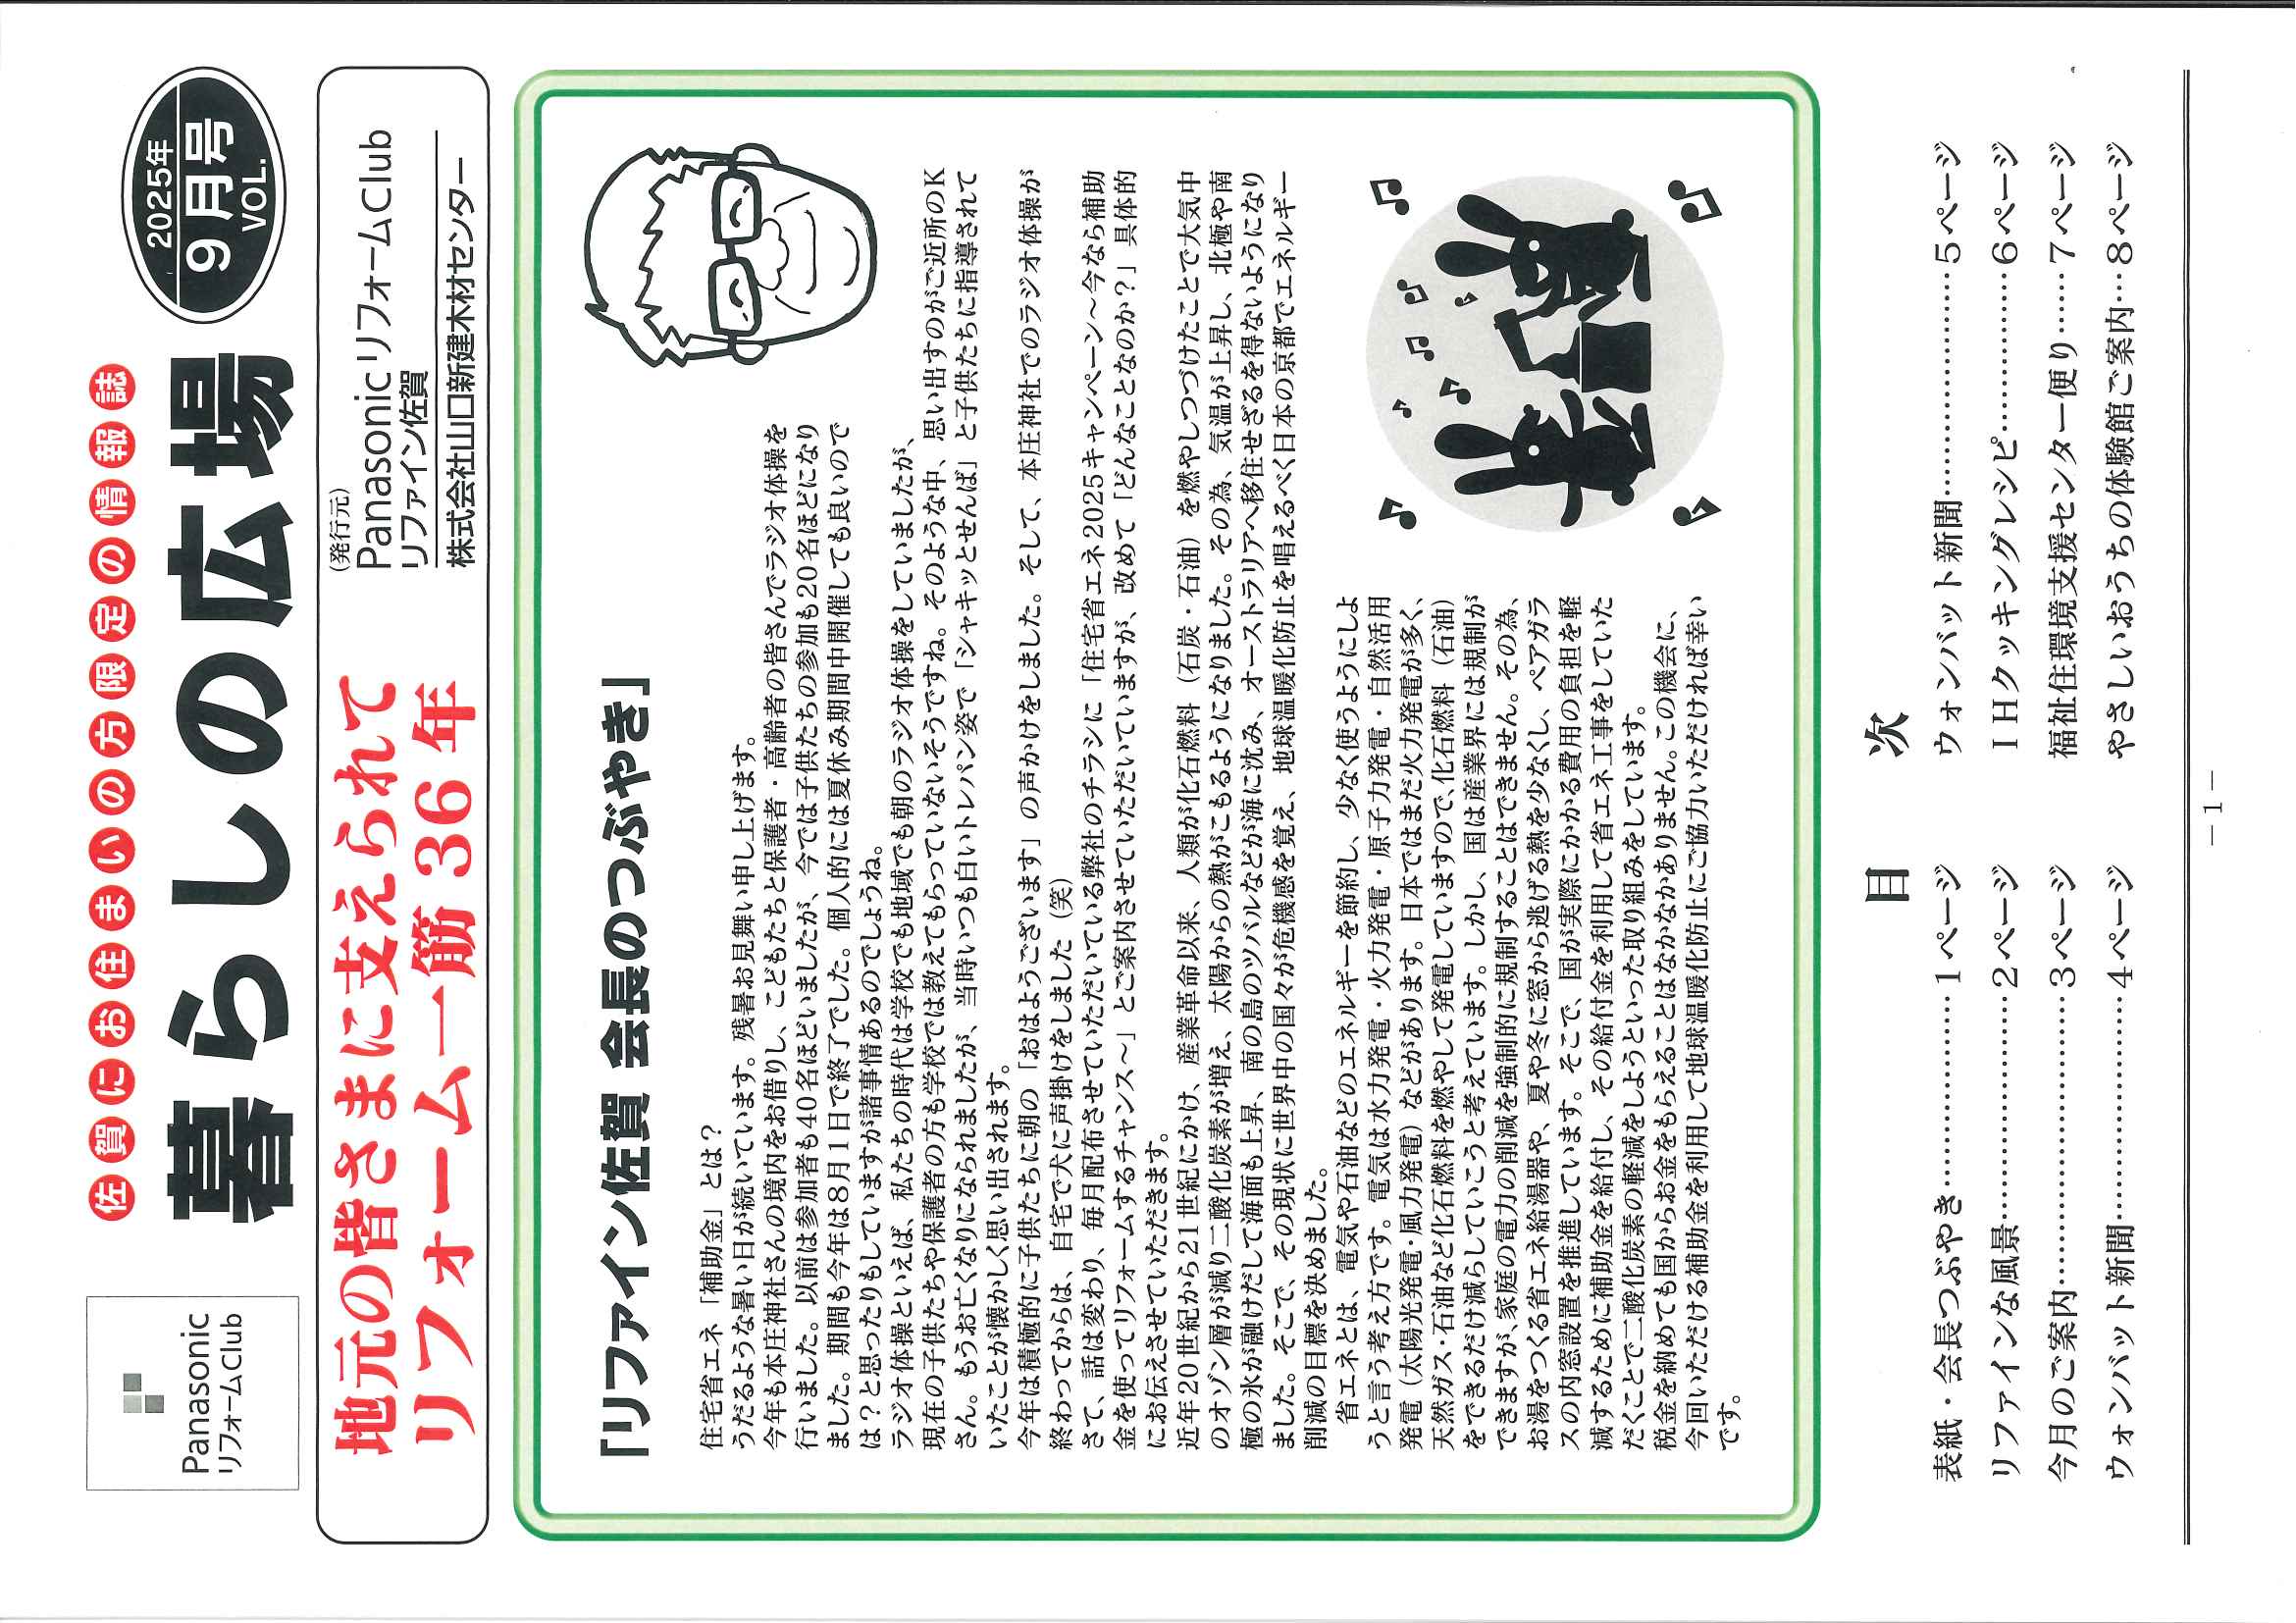 Panasonic
リフォームClub
佐賀にお住まいの方限定の情報誌
暮らしの広場
2025年
9月号
VOL.
地元の皆さまに支えられて
リフォーム一筋 36 年
(発行元)
Panasonic リフォームClub
リファイン佐賀
株式会社山口新建木材センター
「リファイン佐賀 会長のつぶやき」
住宅省エネ「補助金」とは？
うだるような暑い日が続いています。残暑お見舞い申し上げます。
今年も本庄神社さんの境内をお借りし、こどもたちと保護者・高齢者の皆さんでラジオ体操を
行いました。以前は参加者も40名ほどいましたが、今では子供たちの参加も20名ほどになり
ました。期間も今年は8月1日で終了でした。個人的には夏休み期間中開催しても良いので
は？と思ったりもしていますが諸事情あるのでしょうね。
ラジオ体操といえば、私たちの時代は学校でも地域でも朝のラジオ体操をしていましたが、
現在の子供たちや保護者の方も学校では教えてもらっていないそうですね。そのような中、思い出すのがご近所のK
さん。もうお亡くなりになられましたが、当時いつも白いトレパン姿で「シャキッとせんば」と子供たちに指導されて
いたことが懐かしく思い出されます。
今年は積極的に子供たちに朝の「おはようございます」の声かけをしました。そして、本庄神社でのラジオ体操が
終わってからは、自宅で犬に声掛けをしました（笑）
さて、話は変わり、毎月配布させていただいている弊社のチラシに「住宅省エネ2025キャンペーン～今なら補助
金を使ってリフォームするチャンス～」とご案内させていただいていますが、改めて「どんなことなのか？」具体的
にお伝えさせていただきます。
近年20世紀から21世紀にかけ、産業革命以来、人類が化石燃料（石炭・石油）を燃やしつづけたことで大気中
のオゾン層が減り二酸化炭素が増え、太陽からの熱がこもるようになりました。その為、気温が上昇し、北極や南
極の氷が融けだして海面も上昇、南の島のツバルなどが海に沈み、オーストラリアへ移住せざるを得ないようになり
ました。そこで、その現状に世界中の国々が危機感を覚え、地球温暖化防止を唱えるべく日本の京都でエネルギー
削減の目標を決めました。
省エネとは、電気や石油などのエネルギーを節約し、少なく使うようにしよ
うと言う考え方です。電気は水力発電・火力発電・原子力発電・自然活用
発電（太陽光発電・風力発電）などがあります。日本ではまだ火力発電が多く、
天然ガス・石油など化石燃料を燃やして発電していますので、化石燃料（石油）
をできるだけ減らしていこうと考えています。しかし、国は産業界には規制が
できますが、家庭の電力の削減を強制的に規制することはできません。その為、
お湯をつくる省エネ給湯器や、夏や冬に窓から逃げる熱を少なくし、ペアガラ
スの内窓設置を推進しています。そこで、国が実際にかかる費用の負担を軽
減するために補助金を給付し、その給付金を利用して省エネ工事をしていた
だくことで二酸化炭素の軽減をしようといった取り組みをしています。
税金を納めても国からお金をもらえることはなかなかありません。この機会に、
今回いただける補助金を利用して地球温暖化防止にご協力いただければ幸い
です。
目　次
表紙・会長つぶやき……………………1ページ
リファインな風景………………………2ページ
今月のご案内……………………………3ページ
ウォンバット新聞………………………4ページ
ウォンバット新聞………………………5ページ
ＩＨクッキングレシピ…………………6ページ
福祉住環境支援センター便り……7ページ
やさしいおうちの体験館ご案内…8ページ
－1－